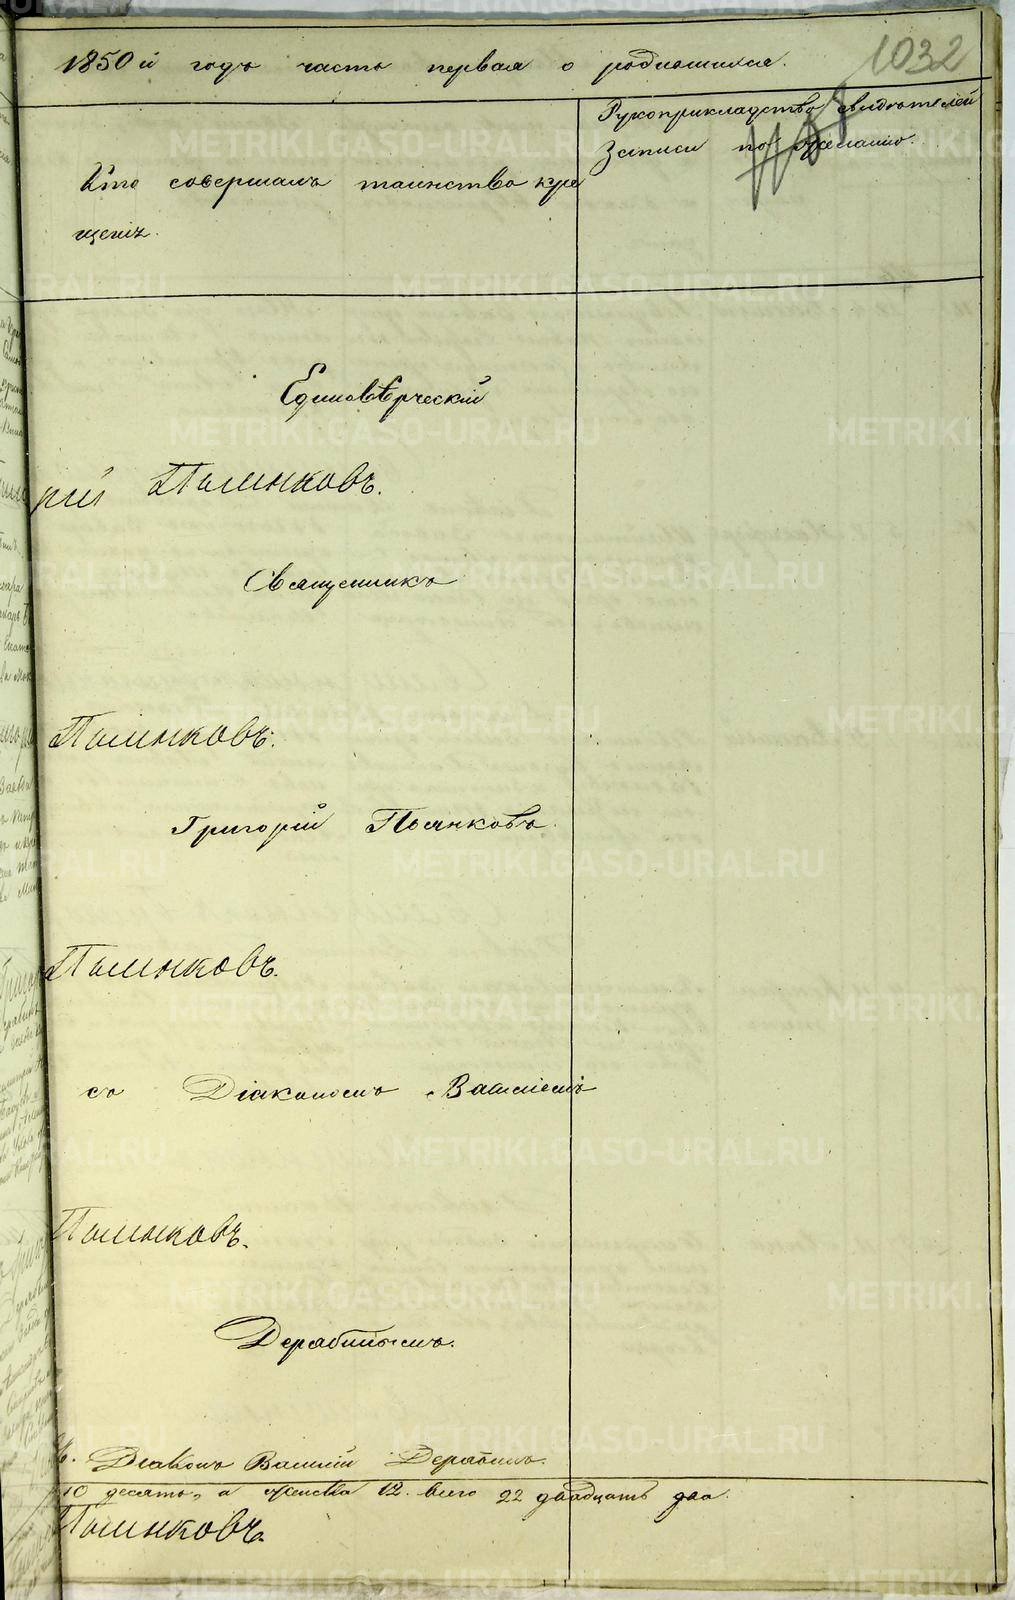 1850й годъ часть первая о родившихся.
1032
Кто совершалъ таинство кре
щенія.
Рукоприкладство свидѣтелей
Записи по желанію.
Единовѣрческій
рій Пьянковъ.
Священникъ
Пьянковъ.
Григорій Пьянковъ.
Пьянковъ.
съ Діакономъ Василіемъ
Пьянковъ.
Дерябинымъ.
Діаконъ Василій Дерябинъ.
10 десять, а женска 12. всего 22 двадцать два.
Пьянковъ.
METRIKI.GASO-URAL.RU